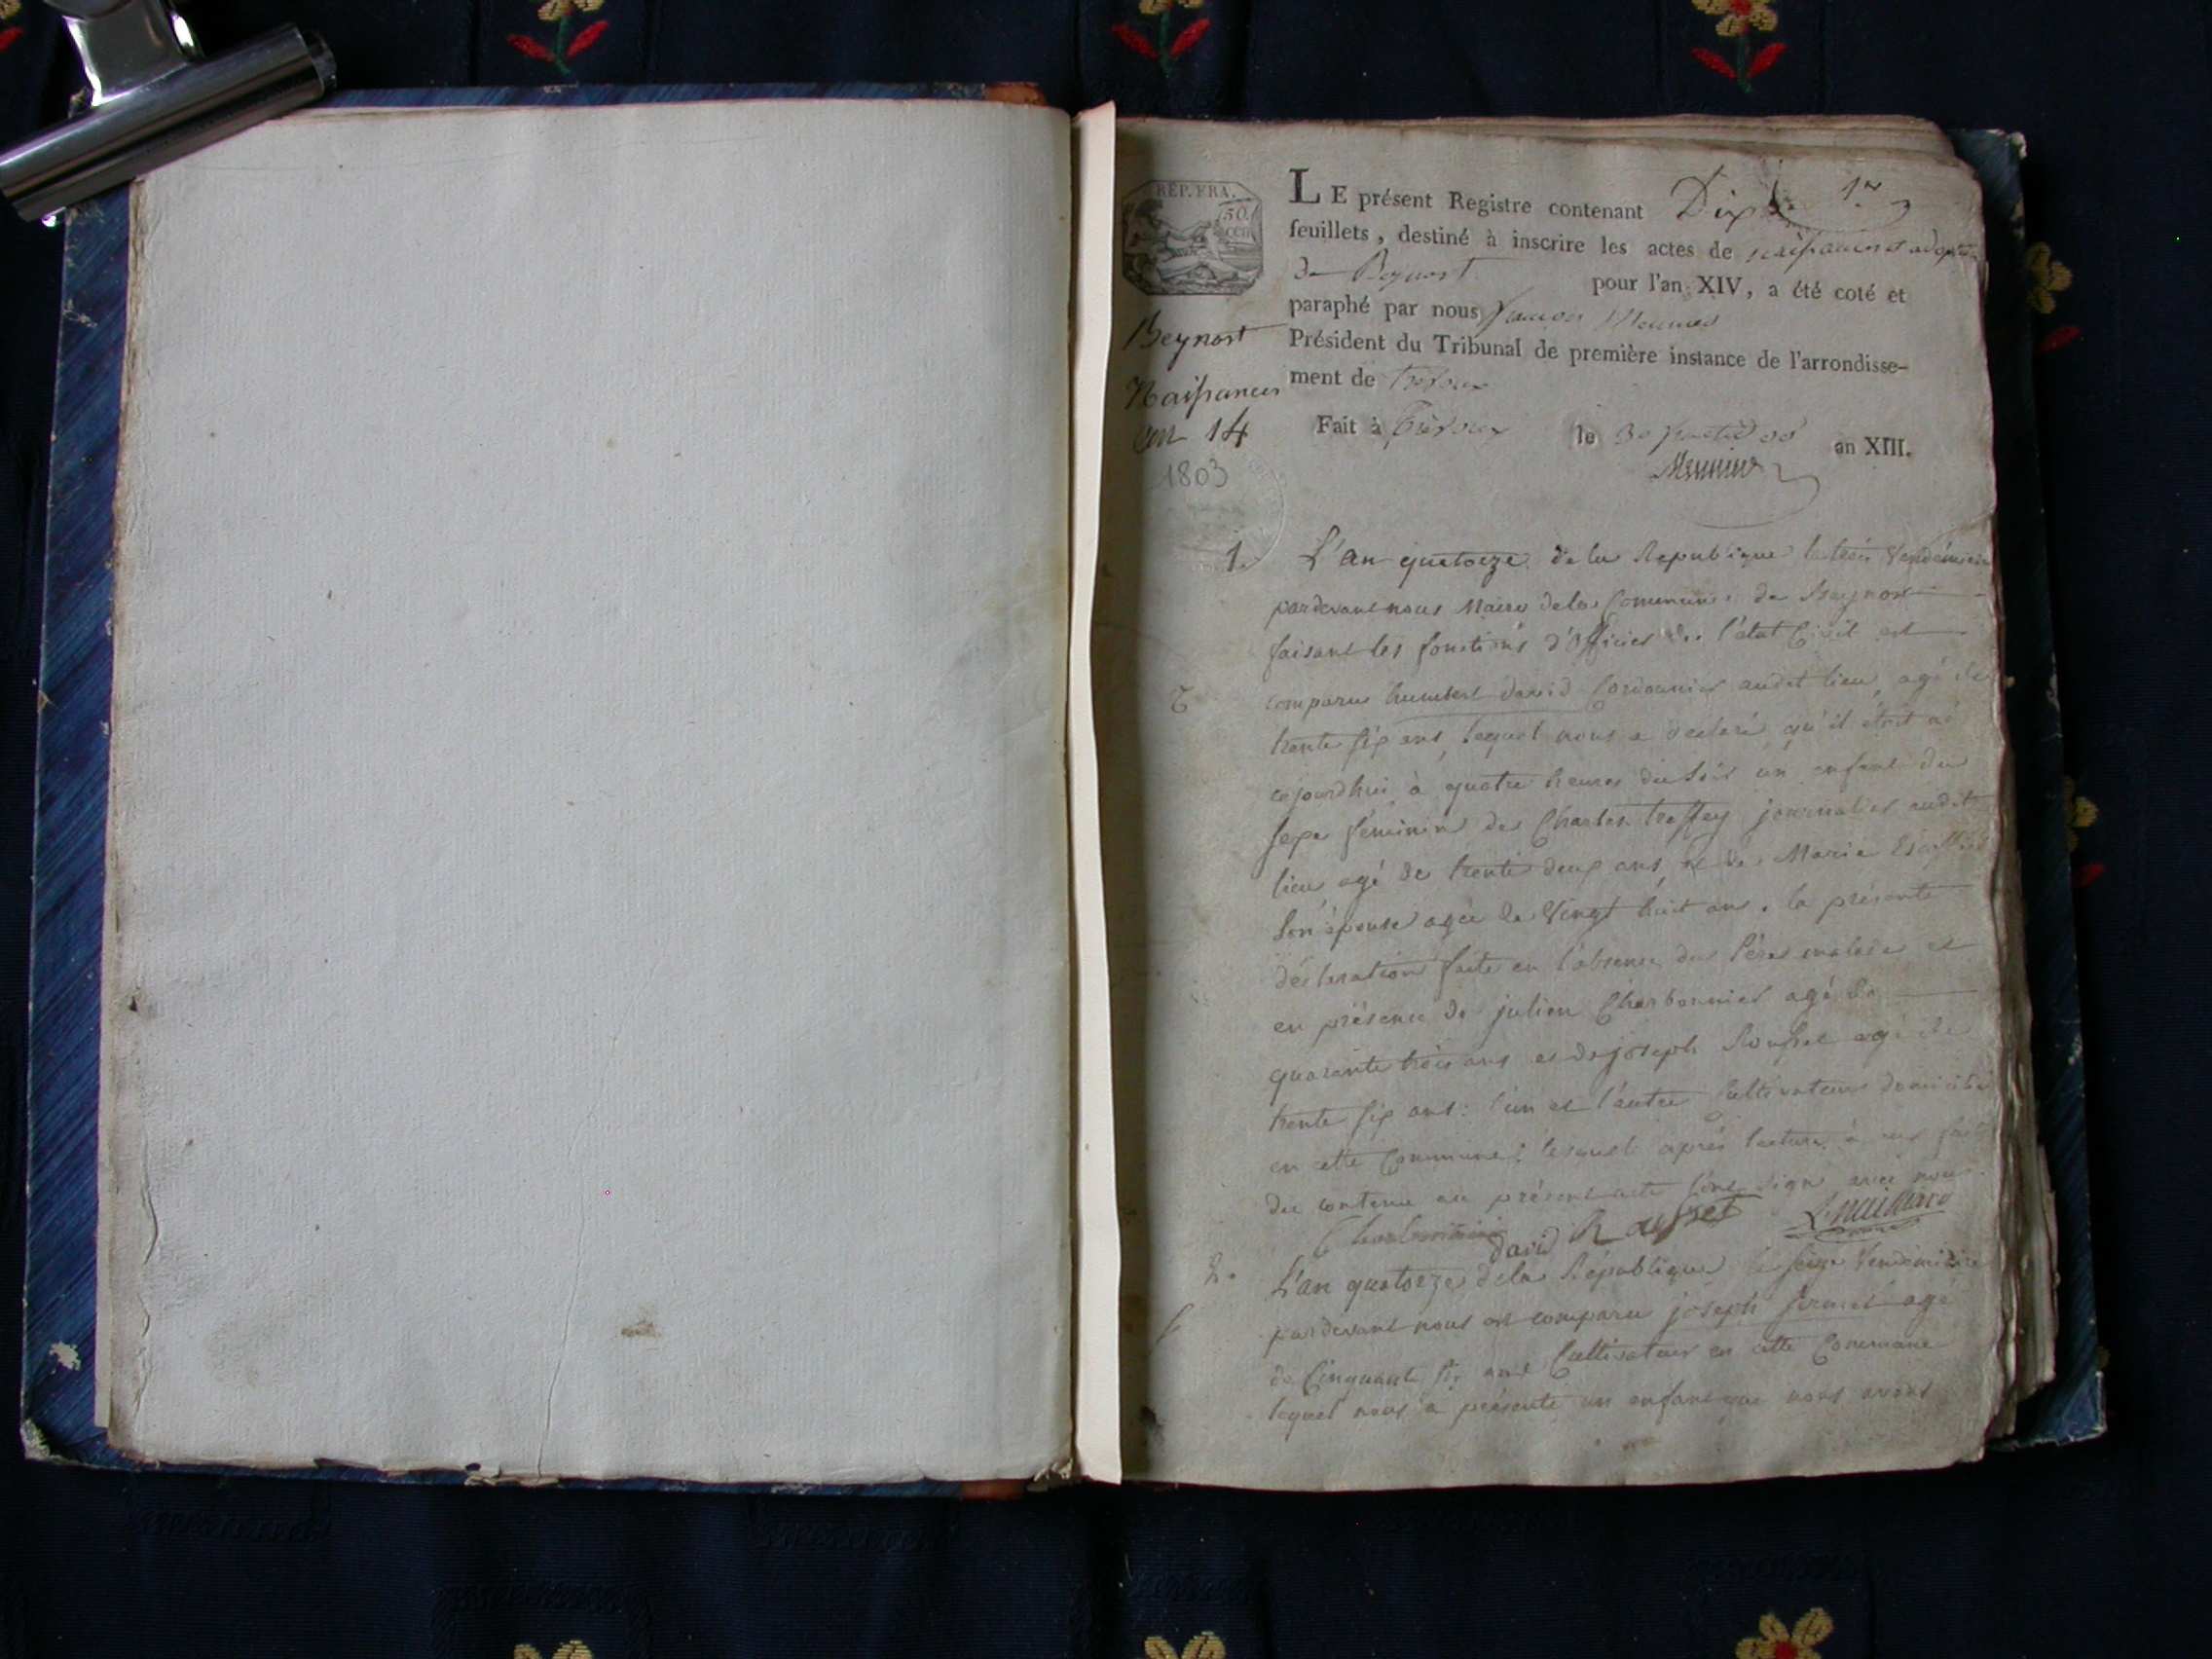 REP. FRA.
50.
cen
LE présent Registre contenant Dix 1er
feuillets, destiné à inscrire les actes de naissances adopt
de Beynost pour l'an XIV, a été coté et
paraphé par nous
Président du Tribunal de première instance de l'arrondisse-
ment de Trévoux
Fait à Trévoux le 30 fructidor an XIII.
Meunier
Beynost
Naissances
an 14
1803
1. L'an quatorze de la Republique le trois Vendémiaire
pardevant nous Maire de la Commune de Beynost
faisant les fonctions d'Officier de l'état Civil est
comparu humbert david Cordonnier audit lieu, agé de
trente six ans, lequel nous a declaré qu'il étoit né
cejourdhui à quatre heures du Soir un enfant du
Sexe féminin de Charles treffey journalier audit
lieu agé de trente deux ans, et de Marie
Son épouse agée de Vingt huit ans. la présente
déclaration faite en l'absence du Père malade et
en présence de julien Charbonnier agé de
quarante trois ans et de joseph Rousset agé de
trente six ans: l'un et l'autre Cultivateurs domiciliés
en cette Commune: lesquels après lecture à eux faite
du contenu au présent acte sont signé avec nous
Charbonnier david Rousset
2. L'an quatorze de la République le seize Vendémiaire
pardevant nous est comparu joseph agé
de Cinquant six ans Cultivateur en cette Commune
lequel nous a présenté un enfant que nous avons